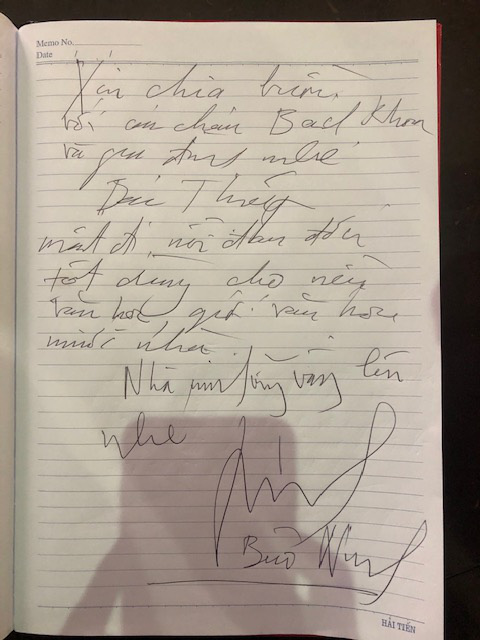 Memo No.
Date
Xin chia buồn
với các cháu Bách Khoa
và gia đình nhé
Bác Thiệp
mất đi, nỗi đau đớn
tột cùng cho nền
văn học, văn hóa
nước nhà
Nhà mình vững vàng lên
nhé
HẢI TIẾN